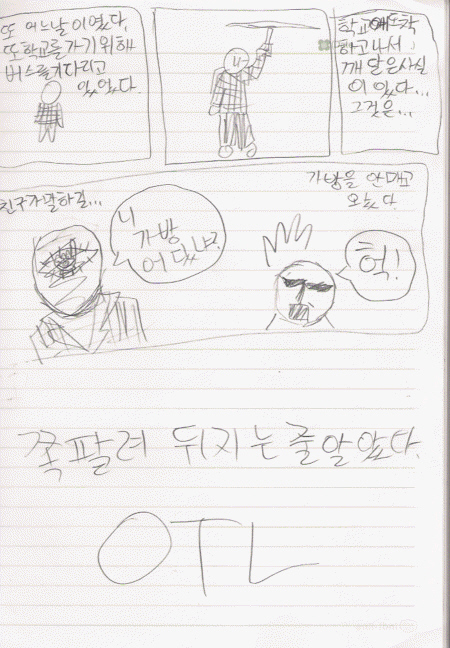 또 어느날이었다.
또 학교를 가기위해
버스를 기다리고
있었다.
학교에 도착
하고나서
깨달은사실
이 있다...
그것은...
친구가 말하길...
니
가방
어딨냐?
가방을 안매고
오늫다
헉!
쪽팔려 뒤지는줄알았다.
OTL